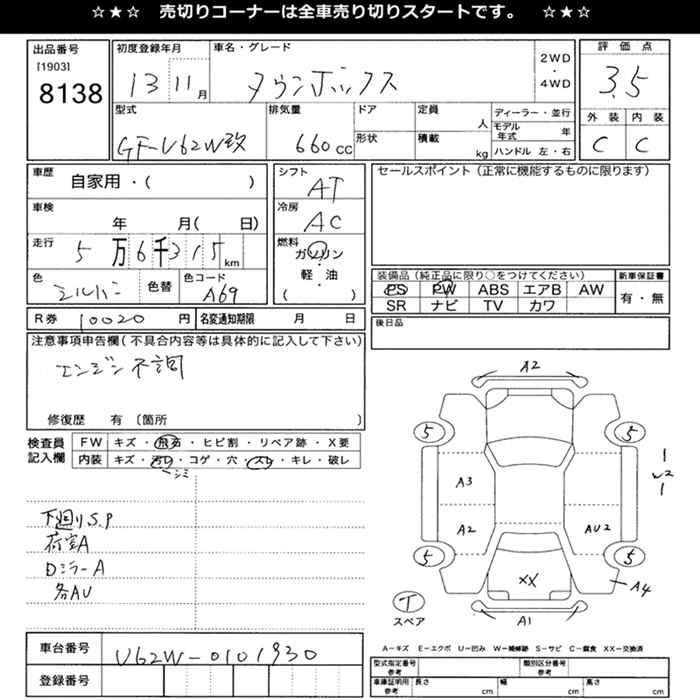 ☆★☆ 売切りコーナーは全車売り切りスタートです。 ☆★☆
出品番号 初度登録年月 車名・グレード 2WD・4WD 評価点
[1903]
8138 13 11月 タウンボックス 3.5
型式 排気量 ドア 定員 人 ディーラー・並行 外装 内装
モデル年式 年
GF-U62W改 660cc 形状 積載 kg ハンドル 左・右 C C
車歴 自家用・( ) シフト AT セールスポイント(正常に機能するものに限ります)
車検 年 月( 日) 冷房 AC
走行 5万6千315km 燃料 ガソリン・軽・油 ( )
色 シルバー 色替 色コード A69
装備品(純正品に限り○をつけてください) 新車保証書
PS PW ABS エアB AW 有・無
SR ナビ TV カワ
R券 10020円 名変通知期限 月 日 後日品
注意事項申告欄(不具合内容等は具体的に記入して下さい)
エンジン不調
修復歴 有 〔箇所 〕
検査員記入欄 FW キズ・飛石・ヒビ割・リペア跡・X要
内装 キズ・汚レ・コゲ・穴・スレ・キレ・破レ
シミ
下廻りS.P
荷室A
DミラーA
各AU
A2
5 5
A3
1
W2
1
A2 AU2
5 5
XX A4
T
スペア A1
A=キズ E=エクボ U=凹み W=補修跡 S=サビ C=腐食 XX=交換済
車台番号 U62W-0101930
登録番号
型式指定番号 参考 類別区分番号 参考
車庫証明用 参考 長さ cm 幅 cm 高さ cm